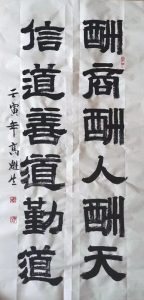 酬商酬人酬天
信道善道勤道
壬寅年高雄生